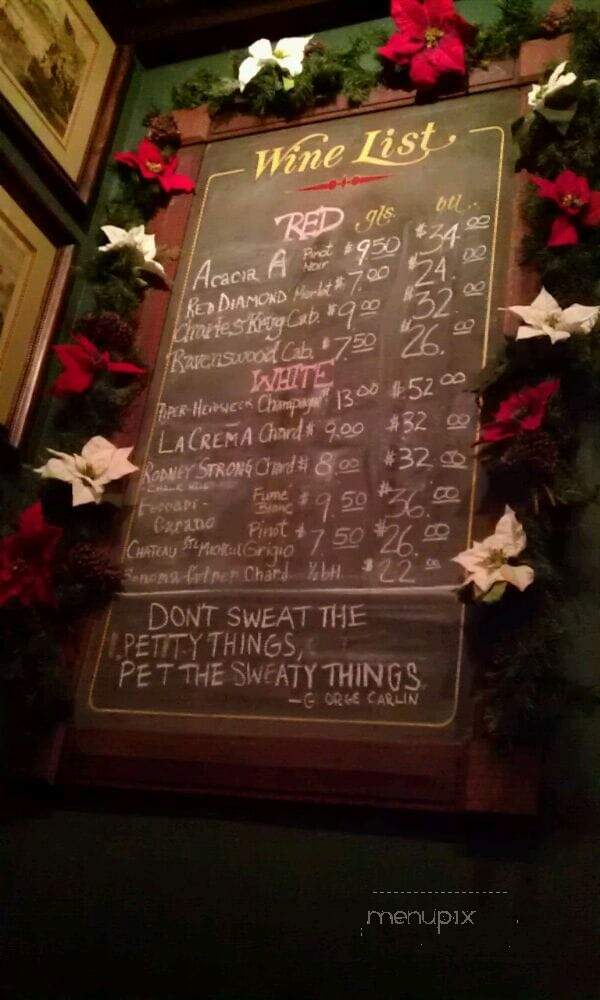 Wine List
RED gls. btl..
Acacia A Pinot Noir $9.50 $34.00
RED DIAMOND Merlot $7.00 $24.00
Charles Krug Cab. $9.00 $32.00
Ravenswood Cab. $7.50 $26.00
WHITE
PIPER-HEIDSIECK Champagne 13.00 $52.00
LA CREMA Chard $9.00 $32.00
RODNEY STRONG Chard $8.00 $32.00
CHALK HILL
Ferrari-Carano Fume Blanc $9.50 $36.00
CHATEAU STE Pinot Grigio $7.50 $26.00
Sonoma Cutrer Chard ½ btl $22.00
DON'T SWEAT THE
PETTY THINGS,
PET THE SWEATY THINGS.
—G ORGE CARLIN
menupix